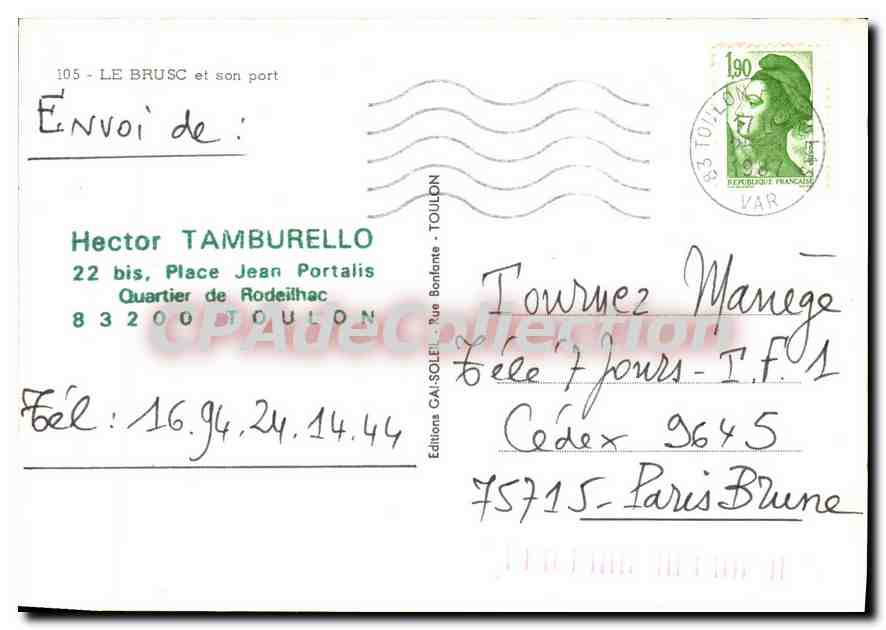 105 - LE BRUSC et son port
Envoi de :
Hector TAMBURELLO
22 bis, Place Jean Portalis
Quartier de Rodeilhac
83200 TOULON
Tél : 16.94.24.14.44
Editions GAI-SOLEIL - Rue Bonfante - TOULON
1,90
REPUBLIQUE FRANÇAISE
83 TOULON
17
1987
VAR
Tournez Manège
Télé 7 Jours - T.F.1
Cédex 9645
75715 - Paris Brune
CPAdeCollection